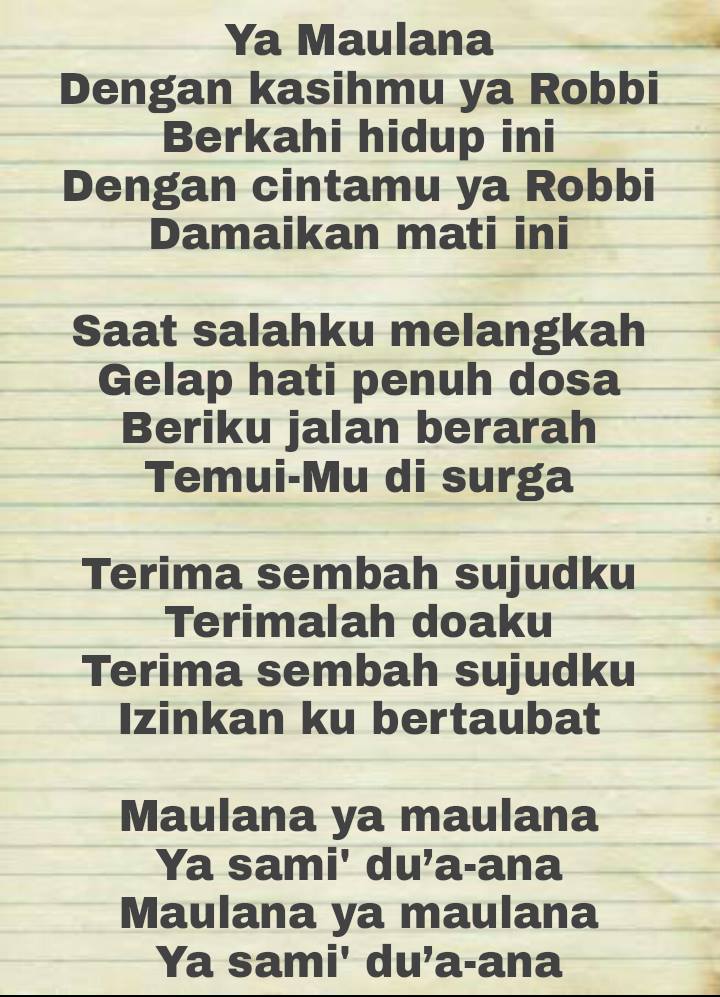 Ya Maulana
Dengan kasihmu ya Robbi
Berkahi hidup ini
Dengan cintamu ya Robbi
Damaikan mati ini

Saat salahku melangkah
Gelap hati penuh dosa
Beriku jalan berarah
Temui-Mu di surga

Terima sembah sujudku
Terimalah doaku
Terima sembah sujudku
Izinkan ku bertaubat

Maulana ya maulana
Ya sami' du’a-ana
Maulana ya maulana
Ya sami' du’a-ana